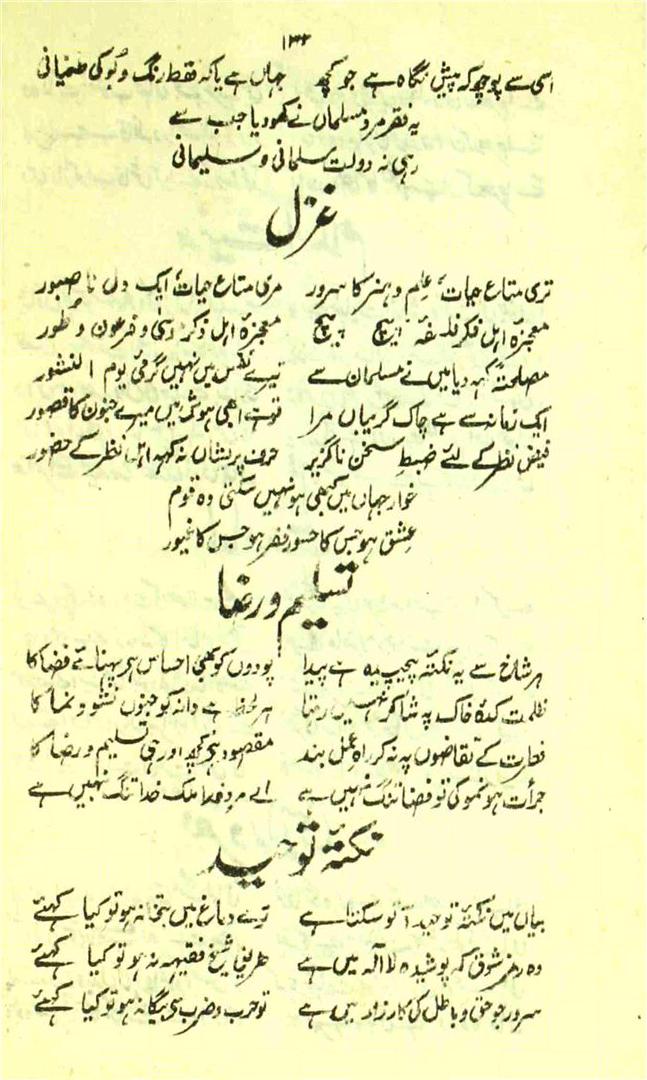 ۱۳۲
اسی سے پوچھ کہ پیش نگاہ ہے جو کچھ جہاں ہے یا کہ فقط رنگ و بُو کی طغیانی
یہ فقر مرد مسلماں نے کھو دیا جب سے
رہی نہ دولت سلمانی و سلیمانی
غزل
تری متاع حیات، علم و ہنر کا سرور مری متاع حیات ایک دل ناصبور
معجزۂ اہل فکر فلسفۂ پیچ پیچ معجزۂ اہل ذکر موسٰی و فرعون و طور
مصلحتاً کہہ دیا میں نے مسلمان سے تیرے نفس میں نہیں گرمیٔ یوم النشور
ایک زمانہ سے ہے چاک گریباں مرا تو ہے ابھی ہوش میں میرے جنوں کا قصور
فیض نظر کے لئے ضبطِ سخن ناگزیر حرف پریشاں نہ کہہ اہل نظر کے حضور
خوار جہاں میں کبھی ہو نہیں سکتی وہ قوم
عشق ہو جس کا جسور فقر ہو جس کا غیور
تسلیم و رضا
ہر شاخ سے یہ نکتۂ پیچیدہ ہے پیدا پودوں کو بھی احساس ہے پہنائے فضا کا
ظلمت کدۂ خاک پہ شاکر نہیں رہتا ہر لحظہ ہے دانہ کو جنوں نشو و نما کا
فطرت کے تقاضوں پہ نہ کر راہ عمل بند مقصود ہے کچھ اور ہی تسلیم و رضا کا
جرأت ہو نمو کی تو فضا تنگ نہیں ہے اے مرد خدا ملک خدا تنگ نہیں ہے
نکتۂ توحید
بیاں میں نکتۂ توحید آ تو سکتا ہے ترے دماغ میں بتخانہ ہو تو کیا کہئے
وہ رمز شوق کہ پوشیدہ لا الٰہ میں ہے طریق شیخ فقیہہ نہ ہو تو کیا کہئے
سرور جو حق و باطل کی کارزار میں ہے تو حرب و ضرب سے بیگانہ ہو تو کیا کہئے